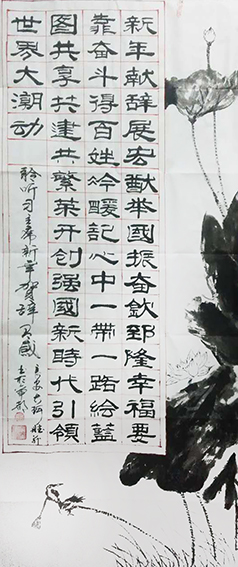 新年献辞展宏猷举國振奋欽郅隆幸福要
靠奋斗得百姓冷暖記心中一带一路绘藍
图共享共建共繁荣开创强國新時代引領
世界大潮动
聆听习主席新年賀辞有感